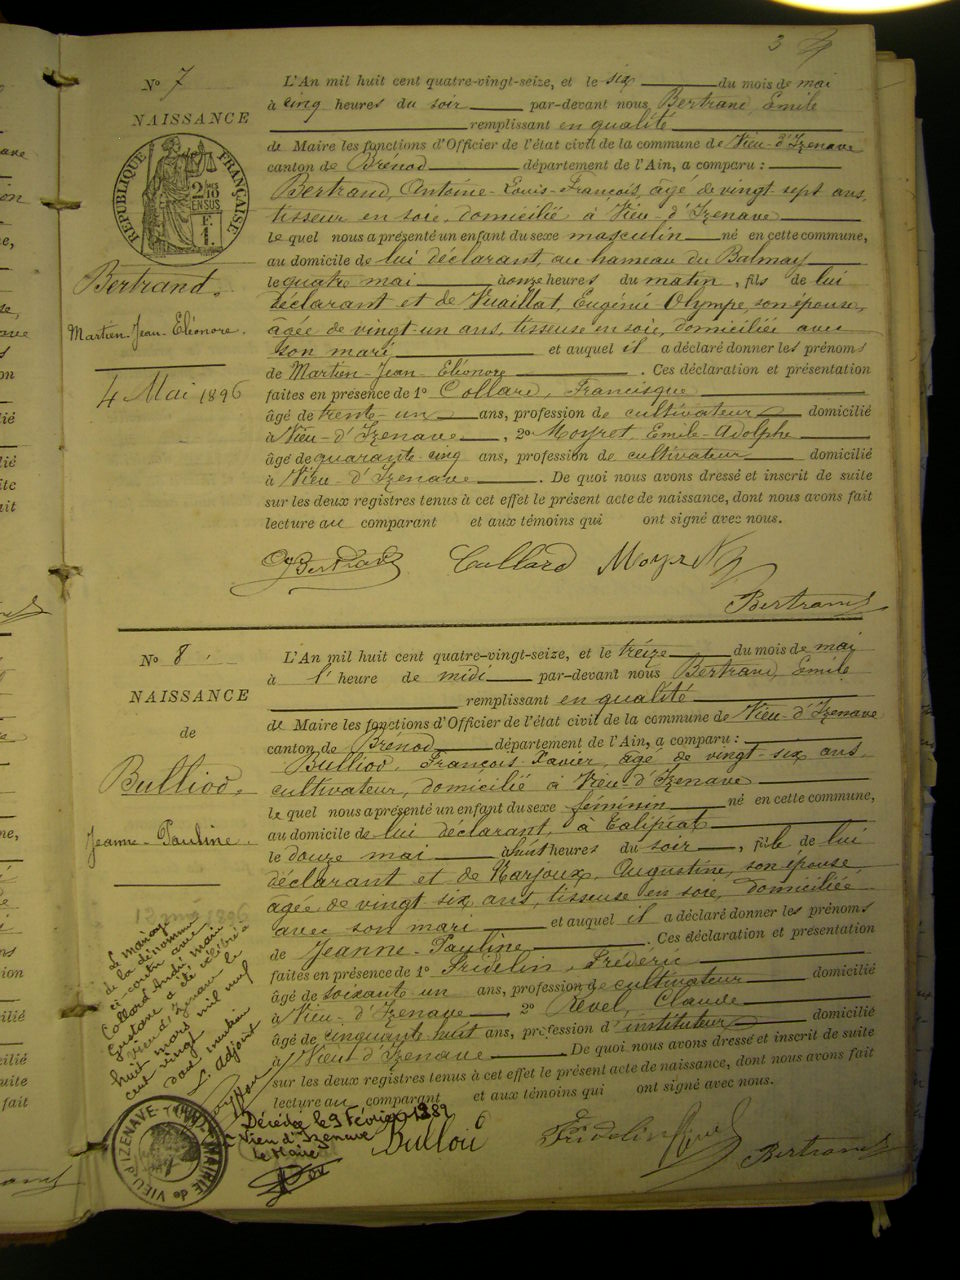 3
No 7
NAISSANCE
RÉPUBLIQUE FRANÇAISE
2/10 EN SUS
F. 1.
Bertrand.
Martien-Jean-Eléonore.
4 Mai 1896
L'An mil huit cent quatre-vingt-seize, et le six du mois de mai
à cinq heures du soir par-devant nous Bertrand, Emile
remplissant en qualité
de Maire les fonctions d'Officier de l'état civil de la commune de Vieu-d'Izenave
canton de Brénod département de l'Ain, a comparu :
Bertrand, Antoine-Louis-François, âgé de vingt-sept ans,
tisseur en soie, domicilié à Vieu-d'Izenave
le quel nous a présenté un enfant du sexe masculin né en cette commune,
au domicile de lui déclarant, au hameau du Balmay
le quatre mai à onze heures du matin, fils de lui
déclarant et de Vuaillat, Eugénie Olympe, son épouse,
âgée de vingt-un ans, tisseuse en soie, domiciliée avec
son mari, et auquel il a déclaré donner les prénoms
de Martien-Jean-Eléonore. Ces déclaration et présentation
faites en présence de 1o Collard, Francisque
âgé de trente-un ans, profession de cultivateur domicilié
à Vieu-d'Izenave, 2o Moyret, Emile-Adolphe
âgé de quarante-cinq ans, profession de cultivateur domicilié
à Vieu-d'Izenave. De quoi nous avons dressé et inscrit de suite
sur les deux registres tenus à cet effet le présent acte de naissance, dont nous avons fait
lecture au comparant et aux témoins qui ont signé avec nous.
Bertrand Collard Moyret
Bertrand
No 8
NAISSANCE
de
Bulliod.
Jeanne-Pauline.
L'An mil huit cent quatre-vingt-seize, et le treize du mois de mai
à l'heure de midi par-devant nous Bertrand, Emile
remplissant en qualité
de Maire les fonctions d'Officier de l'état civil de la commune de Vieu-d'Izenave
canton de Brénod département de l'Ain, a comparu :
Bulliod, François-Xavier, âgé de vingt-six ans,
cultivateur, domicilié à Vieu-d'Izenave
le quel nous a présenté un enfant du sexe féminin né en cette commune,
au domicile de lui déclarant, à Talipiat
le douze mai à huit heures du soir, fille de lui
déclarant et de Narjoux, Augustine, son épouse
âgée de vingt six ans, tisseuse en soie, domiciliée
avec son mari et auquel il a déclaré donner les prénoms
de Jeanne-Pauline. Ces déclaration et présentation
faites en présence de 1o Fridelin, Fréderic
âgé de soixante un ans, profession de cultivateur domicilié
à Vieu-d'Izenave, 2o Revel, Claude
âgé de cinquante huit ans, profession d'instituteur domicilié
à Vieu d'Izenave De quoi nous avons dressé et inscrit de suite
sur les deux registres tenus à cet effet le présent acte de naissance, dont nous avons fait
lecture au comparant et aux témoins qui ont signé avec nous.
Le mariage
de la dénommée
ci-contre avec
Collard André Marie
Gustave a été célébré à
Vieu d'Izenave le
huit mars mil neuf
cent vingt
Dont mention
L'adjoint
Décédée le 9 Février 1982
Vieu d'Izenave
le Maire
MAIRIE de VIEU-d'IZENAVE
Bulliod Fridelin Revel
Bertrand